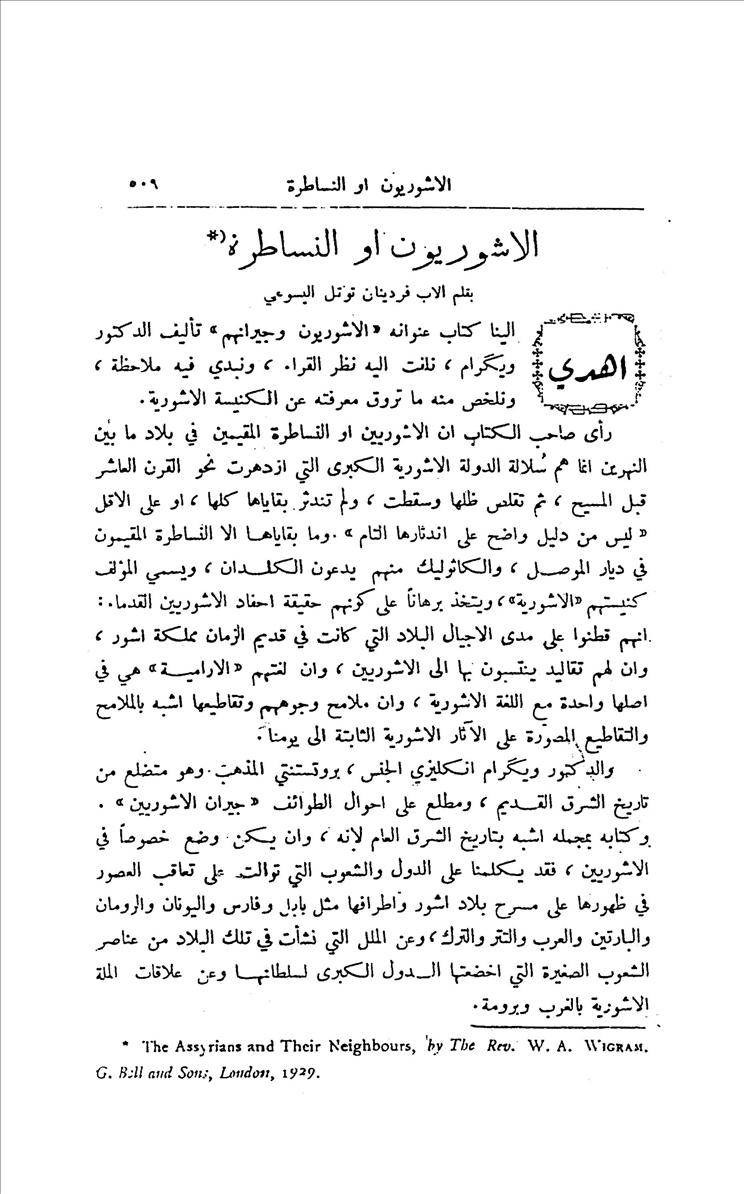 الاشوريون او النساطرة ٥٠٩
الاشوريون او النساطرة(*
بقلم الاب فردينان توتل اليسوعي
اهدي الينا كتاب عنوانه «الاشوريون وجيرانهم» تأليف الدكتور
ويگرام ، نلفت اليه نظر القراء ، ونبدي فيه ملاحظة ،
ونلخص منه ما تروق معرفته عن الكنيسة الاشورية.
رأى صاحب الكتاب ان الاشوريين او النساطرة المقيمين في بلاد ما بين
النهرين انما هم سُلالة الدولة الاشورية الكبرى التي ازدهرت نحو القرن العاشر
قبل المسيح ، ثم تقلص ظلها وسقطت ، ولم تندثر بقاياها كلها ، او على الاقل
« ليس من دليل واضح على اندثارها التام » . وما بقاياها الا النساطرة المقيمون
في ديار الموصل ، والكاثوليك منهم يدعون الكلدان ، ويسمي المؤلف
كنيستهم «الاشورية»، ويتخذ برهاناً على كونهم حقيقة احفاد الاشوريين القدماء:
انهم قطنوا على مدى الاجيال البلاد التي كانت في قديم الزمان مملكة اشور ،
وان لهم تقاليد ينتسبون بها الى الاشوريين ، وان لغتهم «الارامية» هي في
اصلها واحدة مع اللغة الاشورية ، وان ملامح وجوههم وتقاطيعها اشبه بالملامح
والتقاطيع المصورة على الآثار الاشورية الثابتة الى يومنا.
والدكتور ويگرام انكليزي الجنس ، بروتستنتي المذهب. وهو متضلع من
تاريخ الشرق القديم ، ومطلع على احوال الطوائف « جيران الاشوريين » .
وكتابه بمجمله اشبه بتاريخ الشرق العام لانه ، وان يكن وضع خصوصاً في
الاشوريين ، فقد يكلمنا على الدول والشعوب التي توالت على تعاقب العصور
في ظهورها على مسرح بلاد اشور واطرافها مثل بابل وفارس واليونان والرومان
والبارتين والعرب والتتر والترك، وعن الملل التي نشأت في تلك البلاد من عناصر
الشعوب الصغيرة التي اخضعتها الدول الكبرى لسلطانها وعن علاقات الملة
الاشورية بالغرب وبرومة.
* The Assyrians and Their Neighbours, by The Rev. W. A. WIGRAM.
G. Bell and Sons, London, 1929.